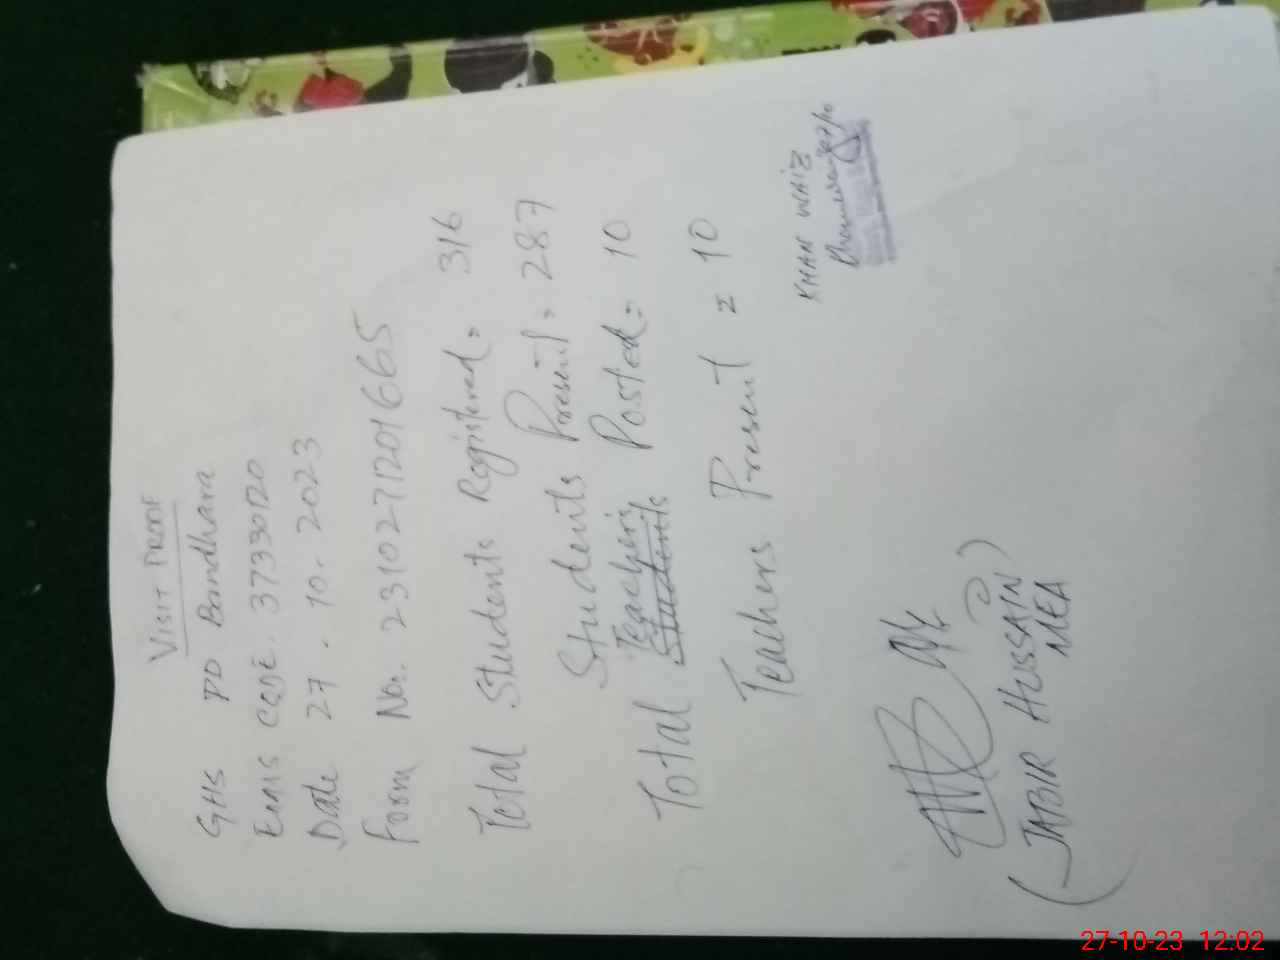 VISIT PROOF
GHS PD Bandhara
EMIS CODE. 37330120
Date 27.10.2023
Form No. 2310271201665
Total Students Registered = 316
Students Present = 287
Total Teachers Students Posted = 10
Teachers Present = 10
KHAN WAIZ
(JABIR HUSSAIN)
MEA
27-10-23 12:02